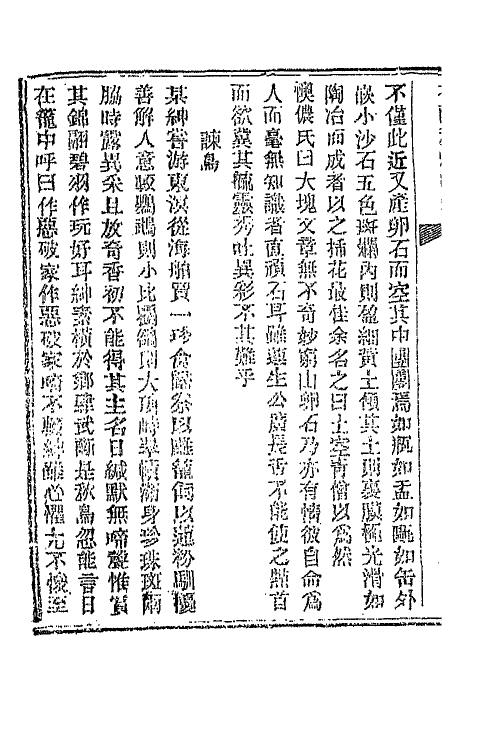 不僅此近又產卵石而空其中團團焉如瓶如盂如甌如缶外
嵌小沙石五色斑斕內則盈細黃土傾其土則裏膜極光滑如
陶冶而成者以之插花最佳余名之曰土空靑僧以爲然
懊儂氏曰大塊文章無不奇妙窮山卵石乃亦有情彼自命爲
人而毫無知識者直頑石耳雖遇生公廣長舌不能使之點首
而欲冀其毓靈秀吐異彩不其難乎
諫鳥
某紳嘗游東溟從海舶買一珍禽歸豢以雕籠飼以蓮粉馴優
善解人意較鸚鵡則小比鸜鵒則大頂峙翠幘滿身珍珠斑兩
脇時露異采且放奇香初不能得其主名日緘默無啼聲惟賞
其錦翮碧羽作玩好耳紳素橫於鄉肆武斷是秋鳥忽能言日
在籠中呼曰作惡破家作惡破家啼不輟紳雖心懼尤不悛至